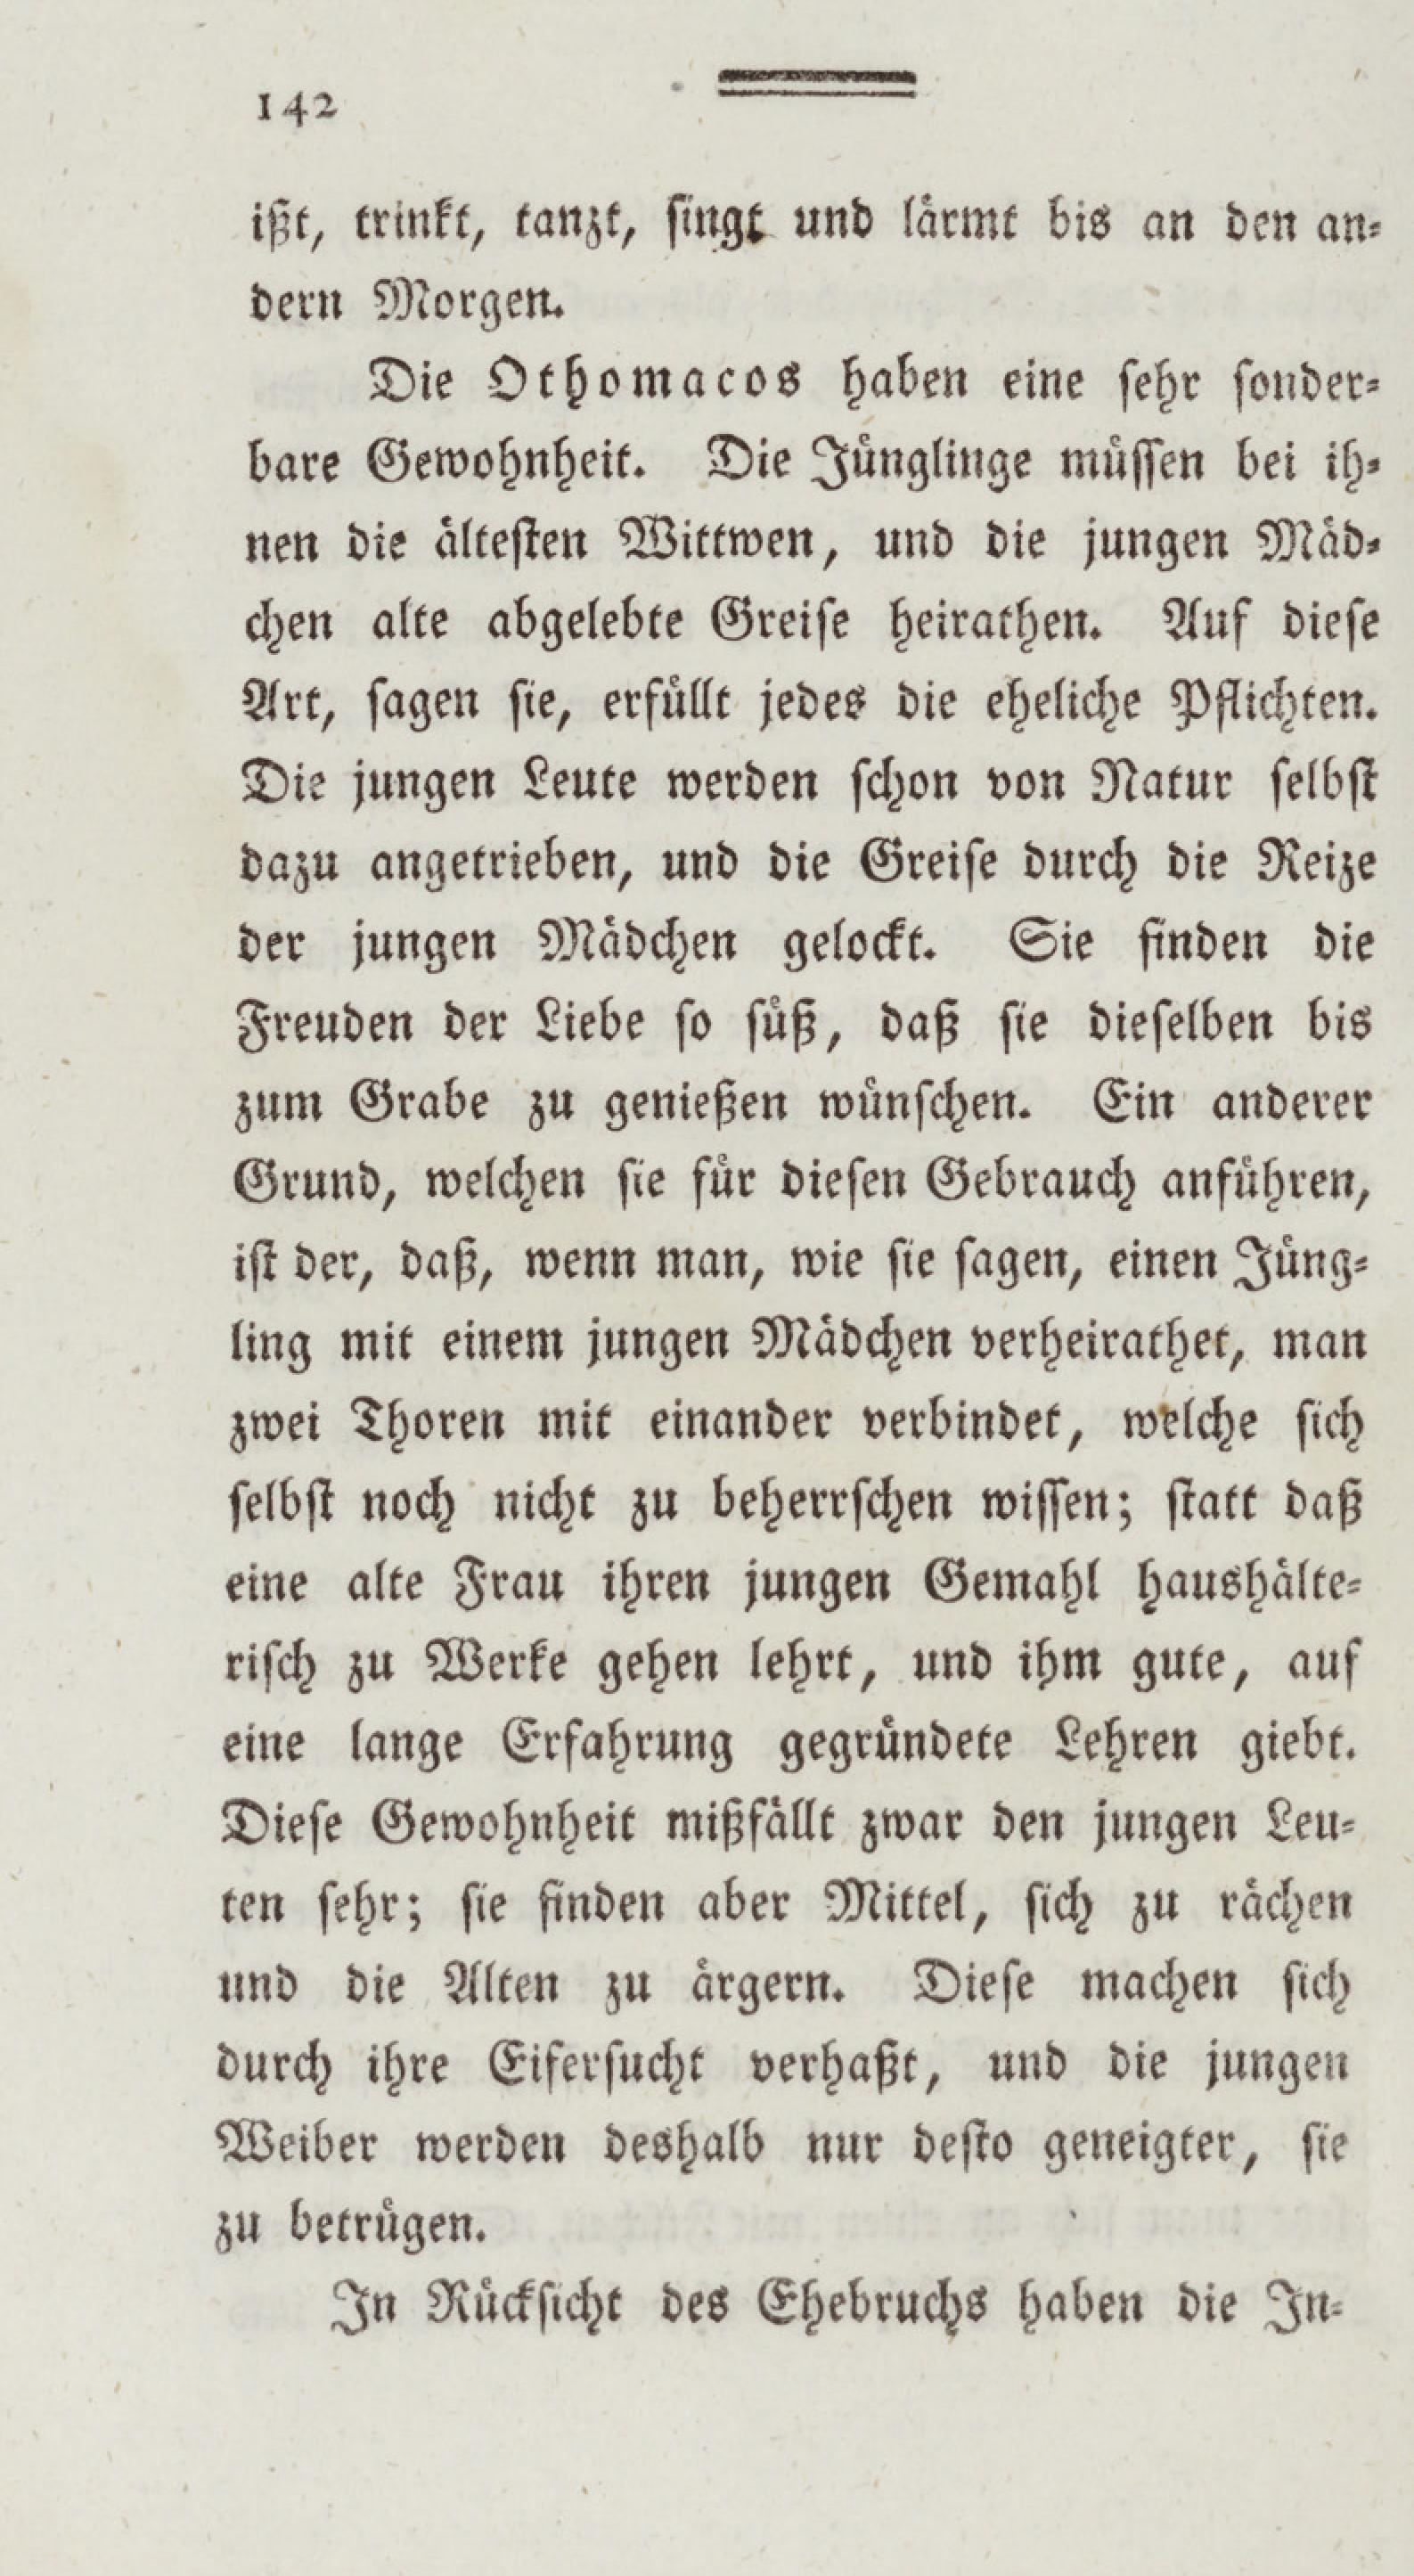 142
ißt, trinkt, tanzt, ſingt und lärmt bis an den an⸗
dern Morgen.
Die Othomacos haben eine ſehr ſonder⸗
bare Gewohnheit. Die Jünglinge müſſen bei ih⸗
nen die älteſten Wittwen, und die jungen Mäd⸗
chen alte abgelebte Greiſe heirathen. Auf dieſe
Art, ſagen ſie, erfüllt jedes die eheliche Pflichten.
Die jungen Leute werden ſchon von Natur ſelbſt
dazu angetrieben, und die Greiſe durch die Reize
der jungen Mädchen gelockt. Sie finden die
Freuden der Liebe ſo ſüß, daß ſie dieſelben bis
zum Grabe zu genießen wünſchen. Ein anderer
Grund, welchen ſie für dieſen Gebrauch anführen,
iſt der, daß, wenn man, wie ſie ſagen, einen Jüng⸗
ling mit einem jungen Mädchen verheirathet, man
zwei Thoren mit einander verbindet, welche ſich
ſelbſt noch nicht zu beherrſchen wiſſen; ſtatt daß
eine alte Frau ihren jungen Gemahl haushälte⸗
riſch zu Werke gehen lehrt, und ihm gute, auf
eine lange Erfahrung gegründete Lehren giebt.
Dieſe Gewohnheit mißfällt zwar den jungen Leu⸗
ten ſehr; ſie finden aber Mittel, ſich zu rächen
und die Alten zu ärgern. Dieſe machen ſich
durch ihre Eiferſucht verhaßt, und die jungen
Weiber werden deshalb nur deſto geneigter, ſie
zu betrügen.
In Rückſicht des Ehebruchs haben die In⸗